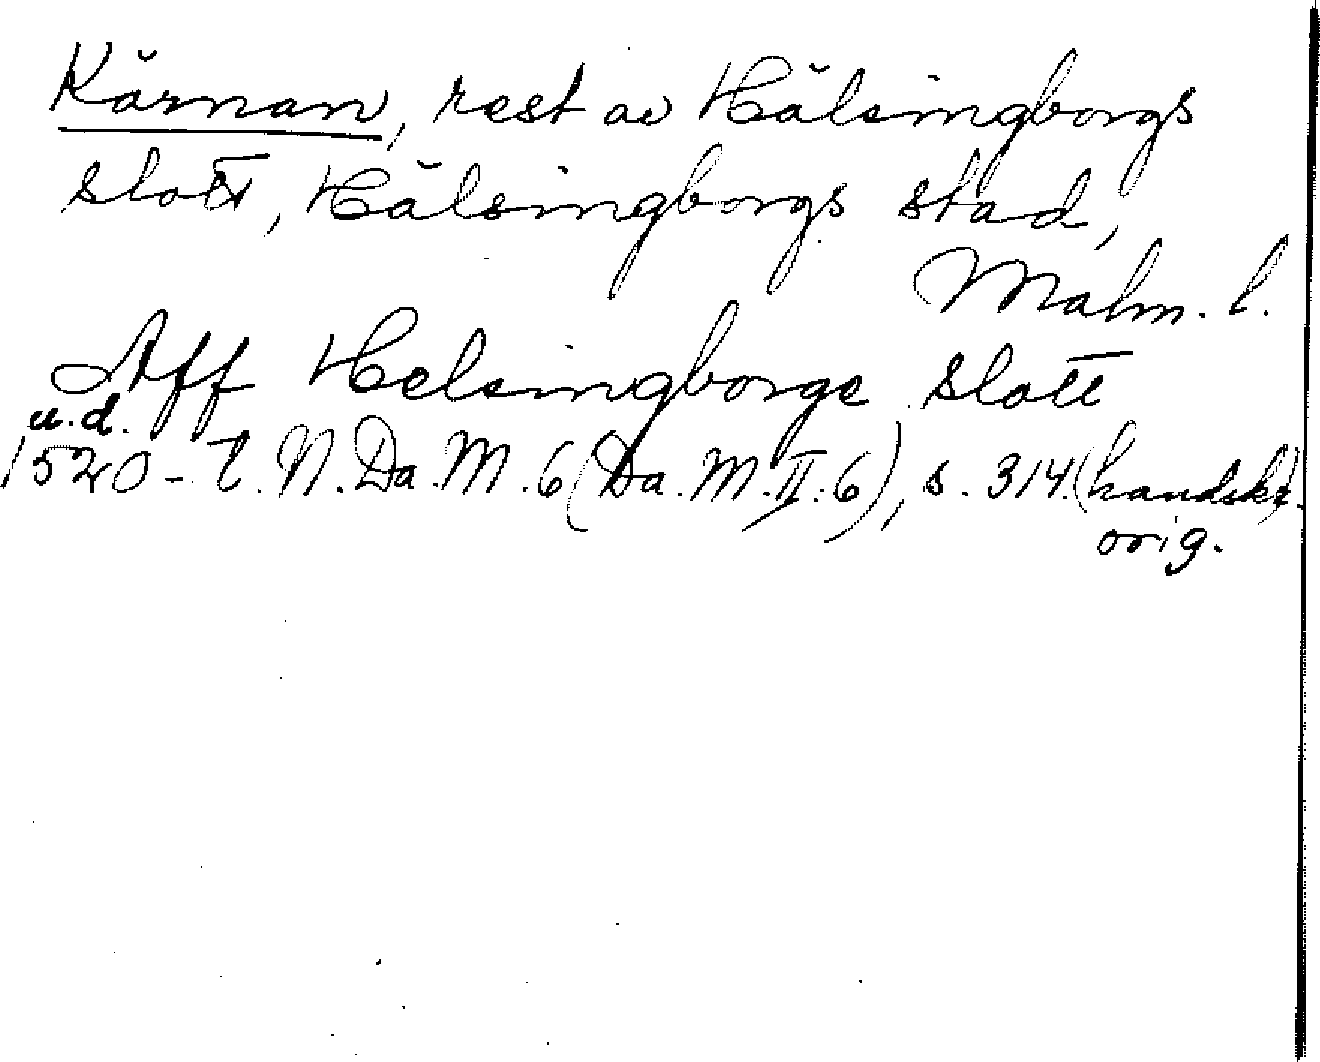 Kärnan, rest av Hälsingborgs
slott, Hälsingborgs stad,
Malm. l.
Aff Helsingborgs slott
u.d.
1520-t. N. Da. M. 6 (Da. M. II. 6), s. 314. (handskr.
orig.